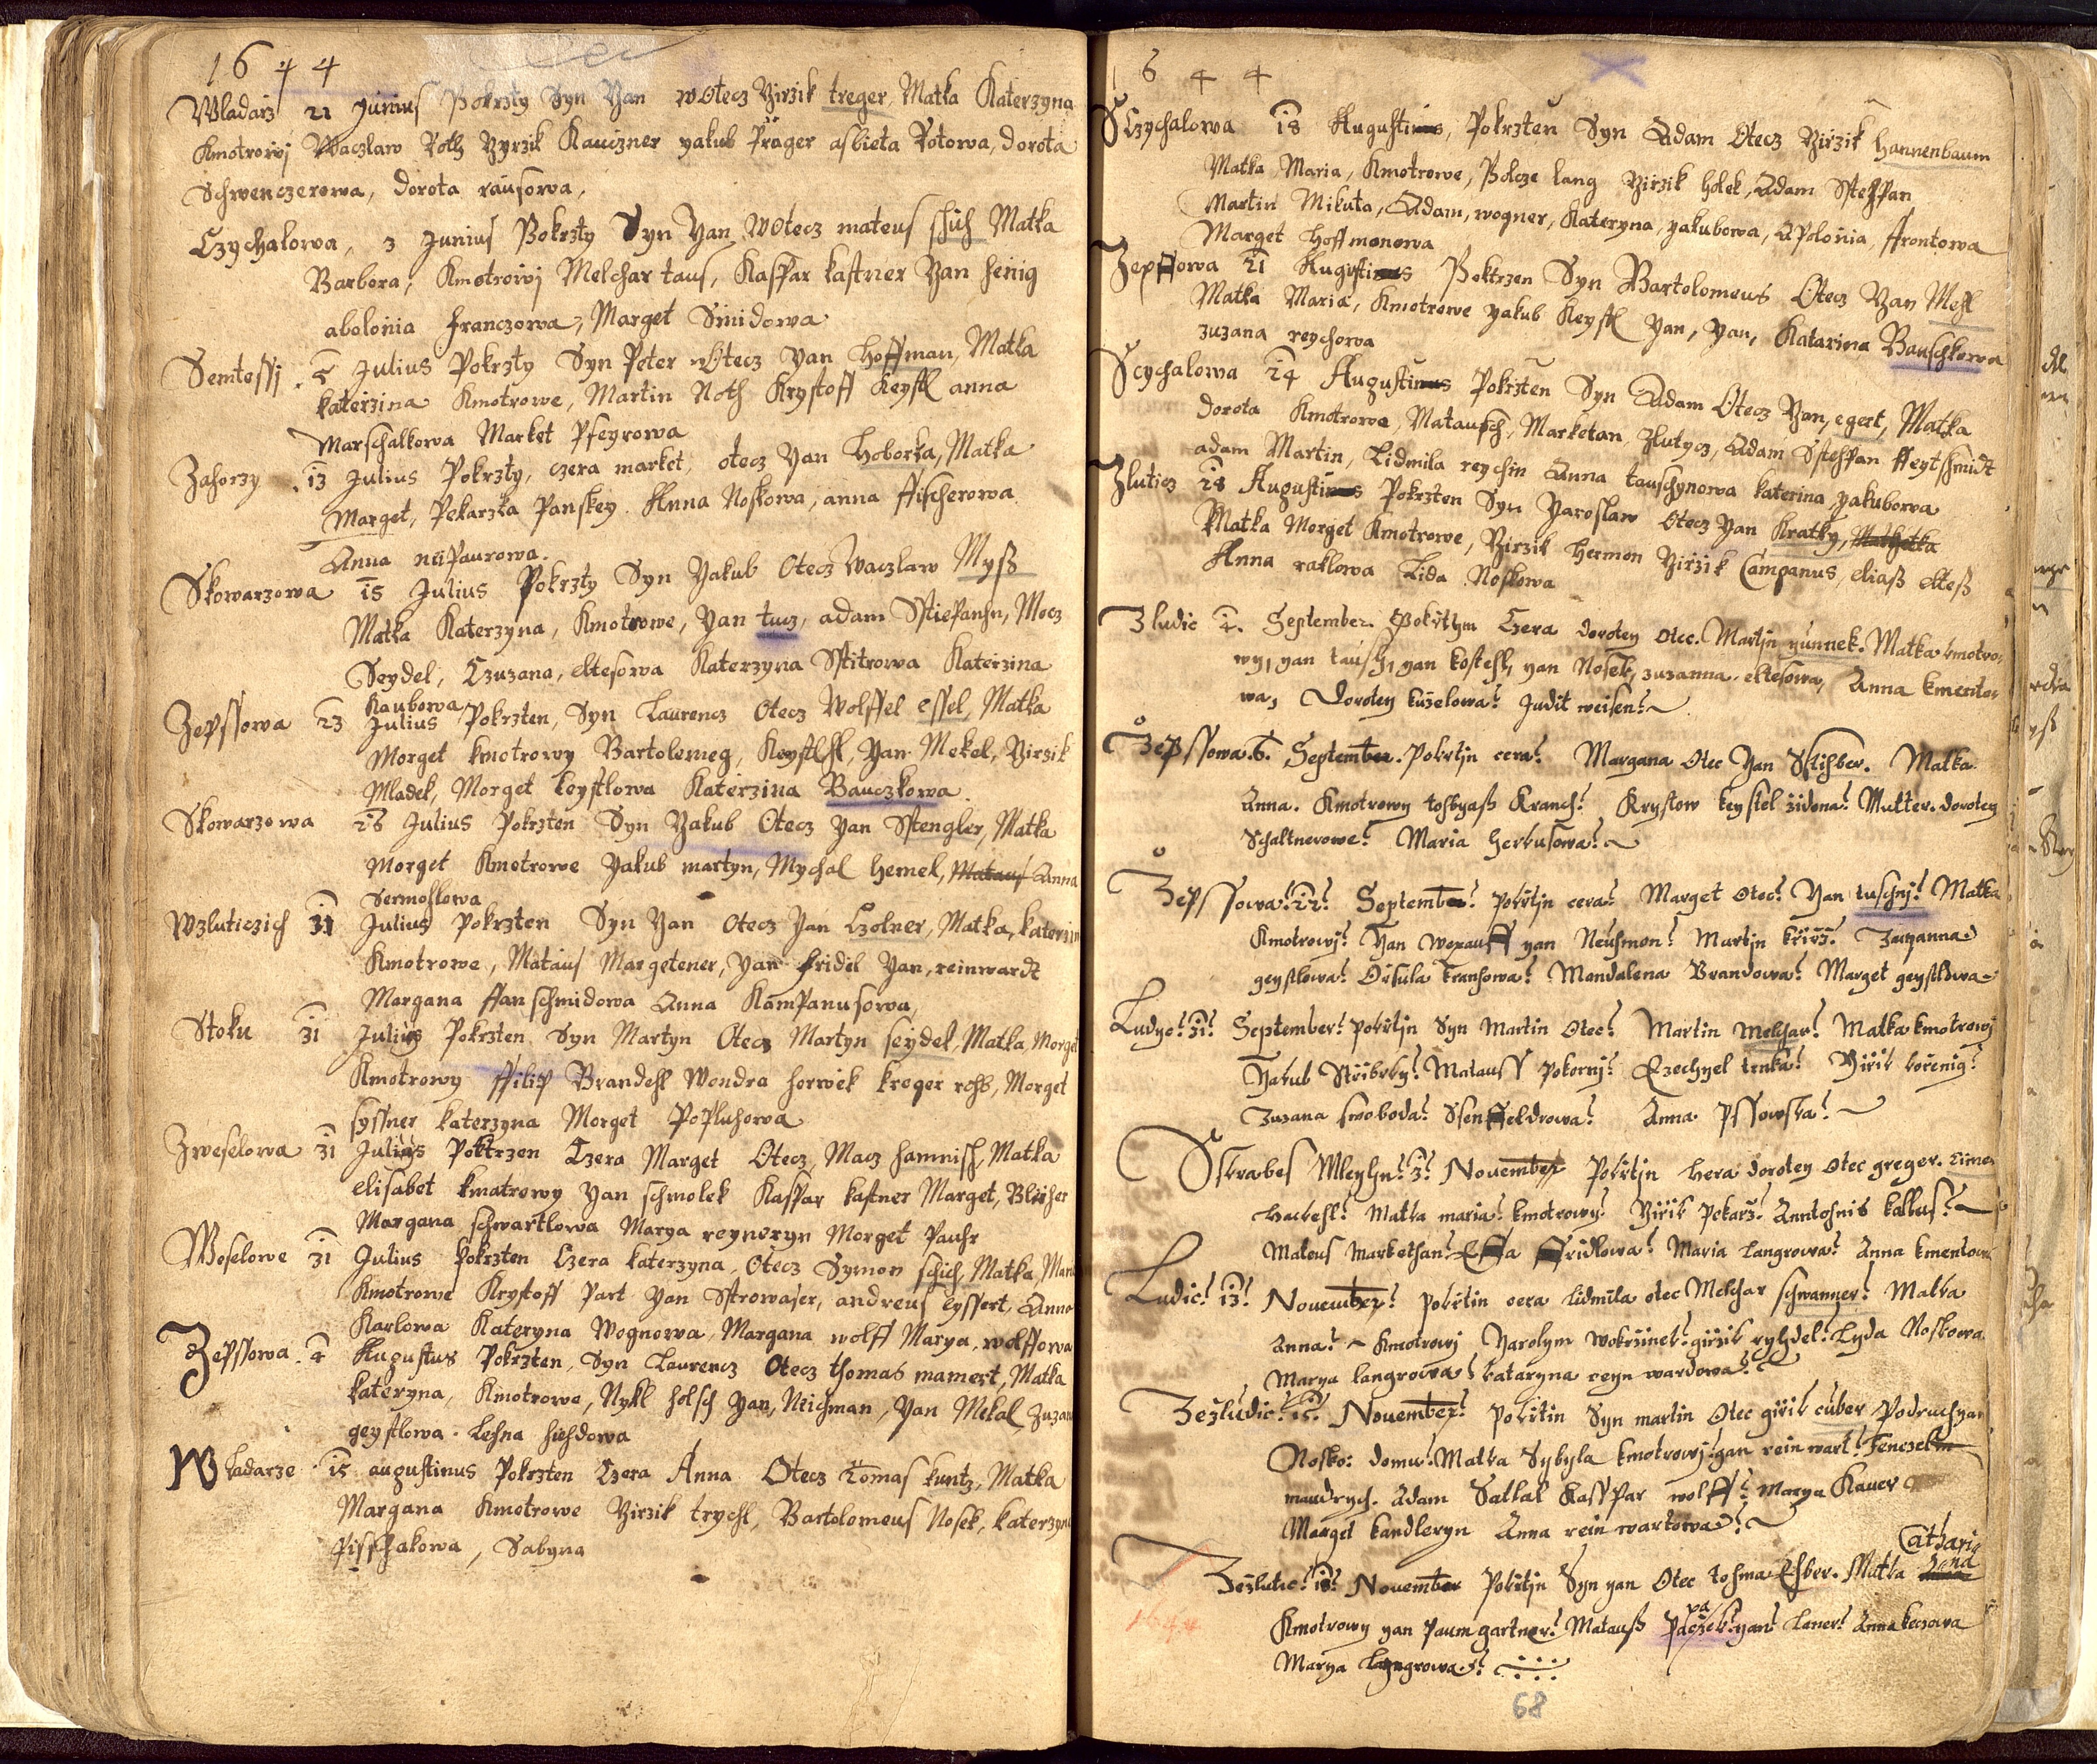 1644
Wladarz 21 Junius Pokrzty Syn Yan wOtecz Yirzik treger, Matka Katerzyna
Kmotrowj Waczlaw Roth Yyrzik Kauczner yakub Präger asbieta Rotowa, dorota
Schwenczerowa, dorota rausowa,
Czychalowa, 3 Junius Pokrzty Syn Yan wOtecz mateus schich Matka
Barbora, Kmotrowj Melchar taus, Kaspar kastner Yan henig
abolonia Franczowa, Marget Smidowa
Semtessj . 5 Julius Pokrzty Syn Peter wOtecz Yan Hoffman, Matka
katerzina Kmotrowe, Martin Noth Krystoff Keystl anna
Marschalkowa Market Pseyrowa
Zahorzy . 13 Julius Pokrzty, czera market, otecz Yan Hoborka, Matka
Marget, Pekarzka Panskey. Anna Noskowa, anna ffischerowa
Anna neipaurowa.
Skowarzowa 15 Julius Pokrzty Syn Yakub Otecz Waczlaw Myß
Matka Katerzyna, Kmotrowe, Yan tucz, adam Sstiepanhn, Mocz
Seydel, Czuzana, eltesowa Katerzyna Sstitrowa Katerzina
Kaubowa
Zepssowa 23 Julius Pokrzten, Syn Laurencz Otecz Wolffel essel, Matka
Morget kmotrowy Bartolemeg, Keystlsl, Yan Mekel, Yirzik
Mladek, Morget keystlowa Katerzina Bauczkowa
Skowarzowa 26 Julius Pokrzten Syn Yakub Otecz Yan Sstengler, Matka
Morget Kmotrowe Yakub martyn, Mychal Hemel, Mataus Anna
Sermoslowa
Wzluticzich 31 Julius Pokrzten Syn Yan Otecz Yan Czolner, Matka, katerzin
Kmotrowe, Mataus Margetener, Yan Fridel Yan, reinwardt
Margana ffanschmidowa Anna Kampanusowa,
Stoku 31 Julius Pokrzten Syn Martyn Otecz Martyn seydel, Matka Morget
Kmotrowy ffilip Brandehl Wondra horwek kreger rohb, Morget
syssner katerzyna Morget Popluhowa
Zweselowa 31 Julius Poktrzen Czera Marget Otecz, Macz hamnisch, Matka
elisabet kmatrowy Yan schmolek Kaspar kastner Marget, Blüher
Margana schwartlowa Marya reyneryn Morget Pauhr
Woselowe 31 Julius Pokrzten Czera katerzyna, Otecz Symon schich, Matka, Mari
Kmotrowe Krystoff Part Yan Sstrowaser, andreus eyssert Anna
Karlowa Kateryna Wognowa, Margana wolff Marya, wolffowa
Zepssowa . 4 Augustus Pokrzten, Syn Laurencz Otecz thomas mamert, Matka
kateryna, Kmotrowe, Nykl holsch Yan, Neichman, Yan Mekal Zuzan
geystlowa. Lehna hiehdowa
Wladarze 15 augustinus Pokrzten Czera Anna Otecz Tomas kuntz, Matka
Margana Kmotrowe Yirzik trychl, Bartolomeus Nosek, katerzyn
pisschakowa, Sabyna
1644
Sczychalowa 18 Augustinus, Pokrzten Syn Adam Otecz Yirzik hannenbaum
Matka Maria, Kmotrowe, Polcze lang Yirzik holek, Adam Stehpan
Martin Mikuta, Adam, wogner, Kateryna, yakubowa, Apolonia, ffrontowa
Marget Hoffmonowa
Zepssowa 21 Augustinus Poktrzen Syn Bartolomeus Otecz Yan Mesl
Matka Maria, Kmotrowe yakub Keystl Yan, Yan, Katarina Bauschkowa
zuzana reychowa
Scychalowa 24 Augustinus Pokrzten Syn Adam Otecz Yan, egert, Matka
dorota Kmotrowe, Matausch, Marketan, Zlutycz, Adam Sstehpan ffeytschmidt
adam Martin, Lidmila reychin Anna tauschynowa katerina yakubowa
Zluticz 28 Augustinus Pokrzten Syn Yaroslaw Otecz Yan Kratky,
Matka Morget Kmotrowe, Yirzik Hermon Yirzik Campanus, eliaß elteß
Anna raklowa Lida Noskowa
Zludic 4. September. Pokrtym Czera doroten Otec. Martjn yunnek. Matka kmotro,
wy, yan tausch, yan kostehl, yan Nosek, zuzanna eltesowa, Anna kmentow
wa, Doroten kuzelowa Judit weisen
Zepssowa. 6. September. Pokrtjn cera Margana Otec Yan Sstihber. Matka
Anna. Kmotrowy tohbyaß Kranch Krystow keystel židona Mutter. doroten
Schaltnerowe Maria Herkusowa
Zepssowa 22 September pokrtjn cera Marget Otec Yan tuschnj Matka
Kmotrowj Yan Woxauff yan Neuhmon Martjn křjž Zuzanna
geystlowa Orsula kranhowa Mandalena Brandowa Marget geystlowa
Ludyc 31 September pokrtjn Syn Martin Otec Martin Melchar Matka kmotrowj
Yakub Střibrky Matauss Pokornj Ezechyel trnka Yirik korenig
Zuzana swoboda Ssenffeldrowa Anna pssowska
Sskrabes Mleyhn 3 November Pokrtjn cera doroten Otec greger. Simon
hackehl Matka maria kmotrowy Yirik Pekarž Anntohnis kallus
Mateus Markethan Effa ffridlowa Maria langrowa Anna kmentowa
Ludic 13 November pokrtin cera lidmila otec Melchar schwanner Matka
Anna Kmotrowj Yarolym Wokrzinek girzik ryhdel Lyda Noskowa
Marya langrowa kataryna reynwardowa
Zezludic 15 November pokrtin Syn martin Otec girik cuber Podruchyne
Nosko: domu Matka Sybyla kmotrowj yan reinwart
maudrych. Adam Sattlar Kasspar wolff Marya Kauer
Marget kandleryn Anna reinwartowa
Zezlutic 18 November Pokrtjn Syn yan Otec tohma Ehber. Matka Catharina
Kmotrowy yan paumgartner Matauß Paczek yan laner Anna keczowa
Marya langrowa
1644
68